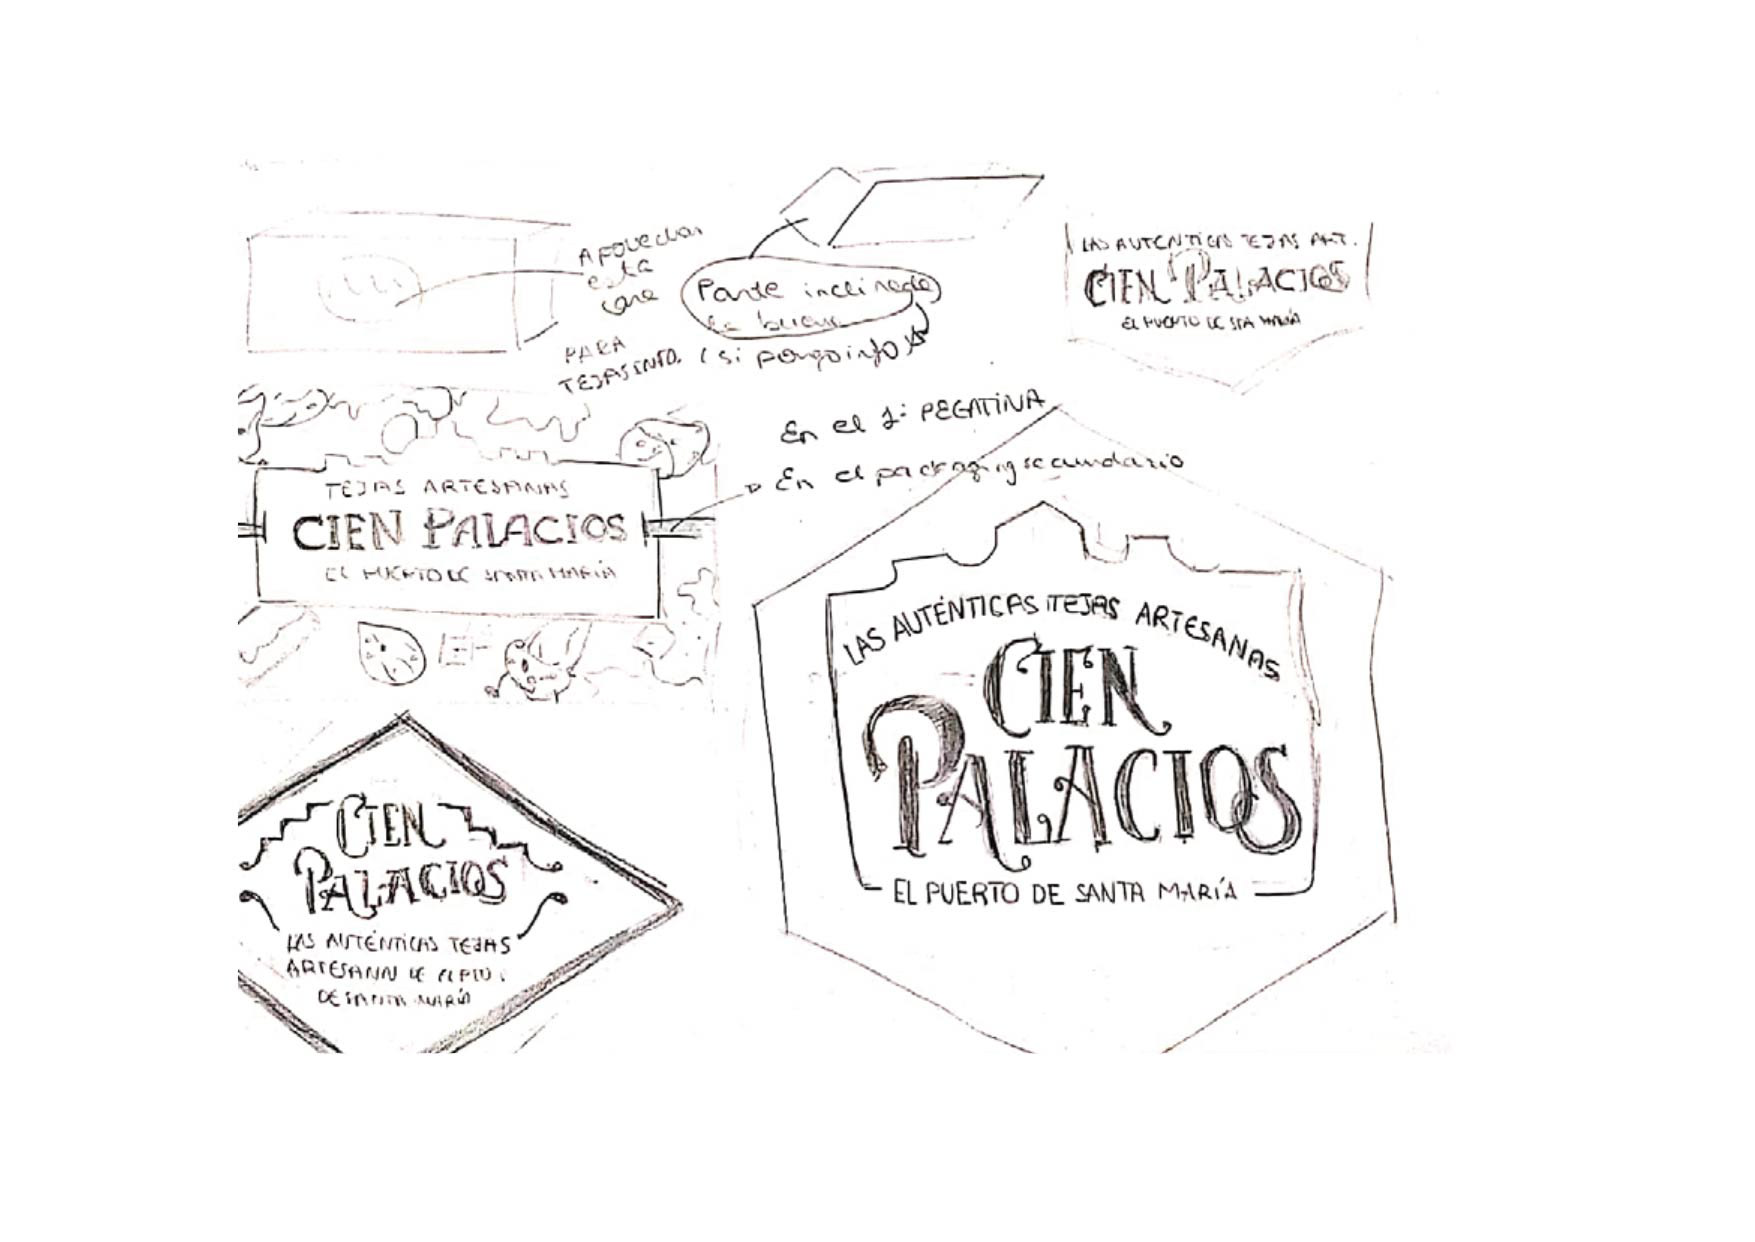 APOVECHAR
esta
cara
Parte inclinada
la buena
PARA
TEJASINTO. (si pongo info)
LAS AUTENTICAS TEJAS ART.
CIEN PALACIOS
EL PUERTO DE STA MARÍA
En el 1º PEGATINA
En el packaging secundario
TEJAS ARTESANAS
CIEN PALACIOS
EL PUERTO DE SANTA MARÍA
LAS AUTÉNTICAS TEJAS ARTESANAS
CIEN
PALACIOS
EL PUERTO DE SANTA MARÍA
CIEN
PALACIOS
LAS AUTÉNTICAS TEJAS
ARTESANA DE EL PTO.
DE SANTA MARÍA